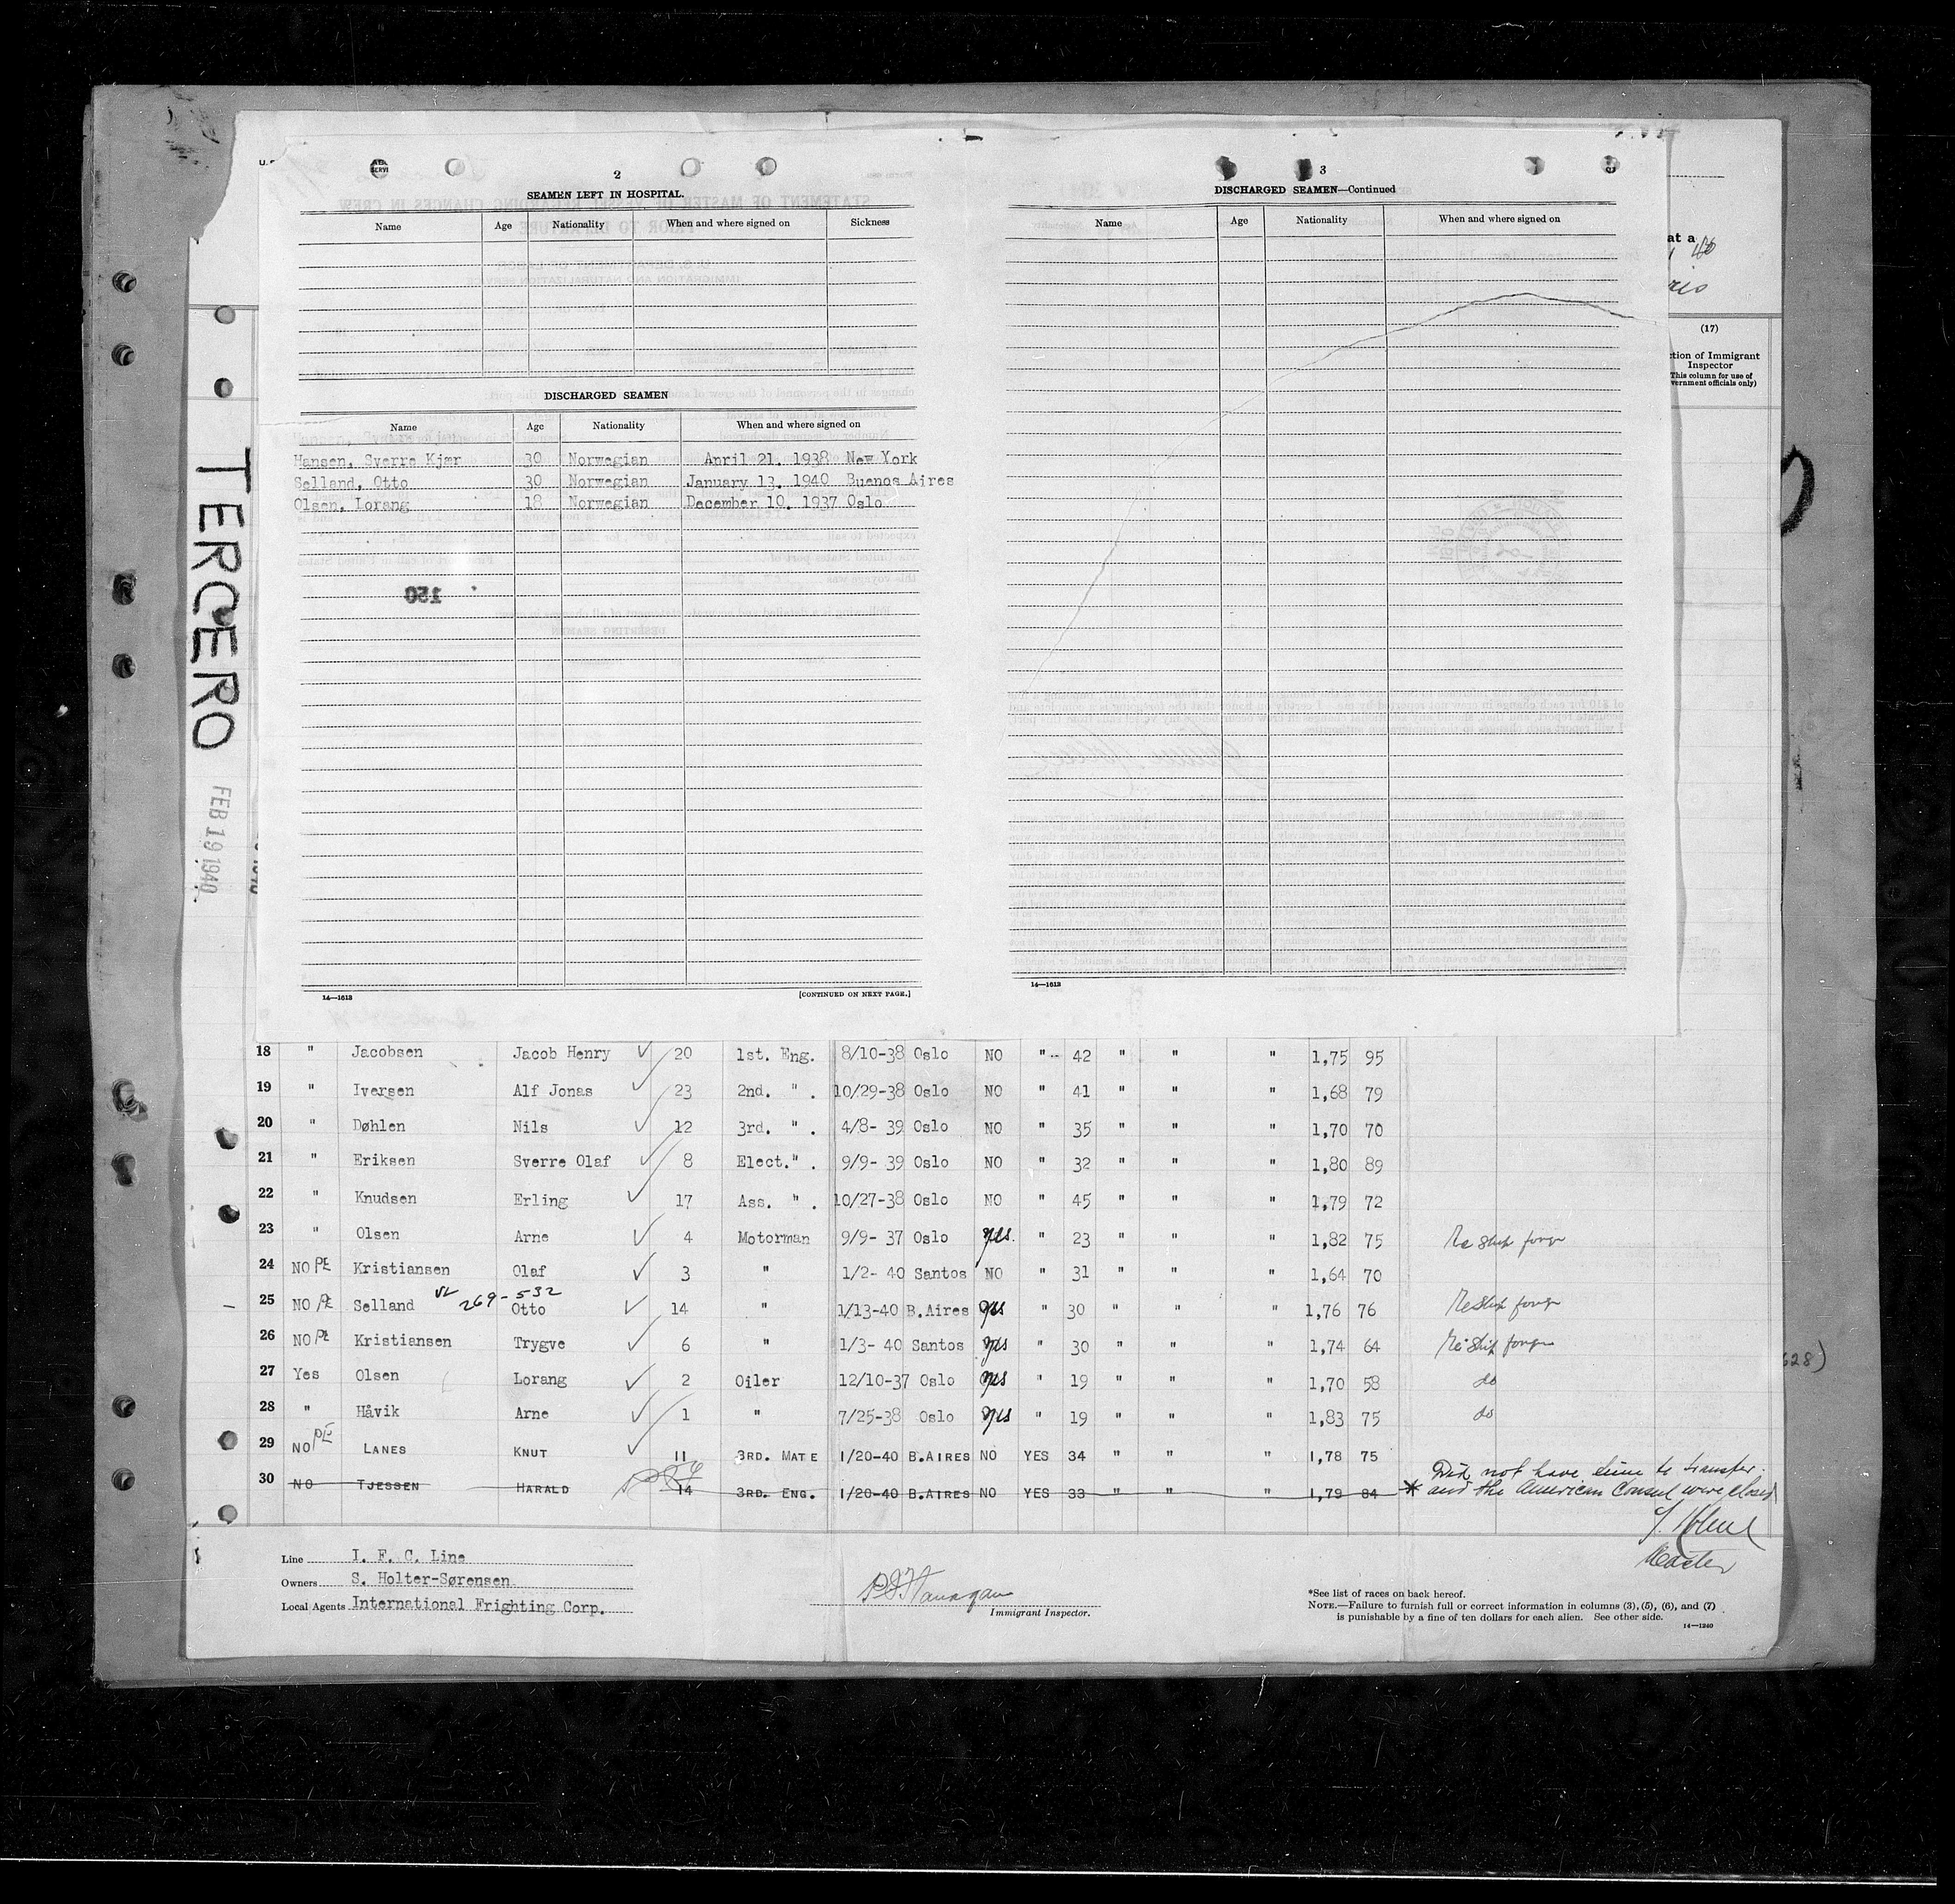 2
SEAMEN LEFT IN HOSPITAL.
Name Age Nationality When and where signed on Sickness
DISCHARGED SEAMEN
Name Age Nationality When and where signed on
Hansen, Sverre Kjær 30 Norwegian April 21. 1938 New York
Selland, Otto 30 Norwegian January 13. 1940 Buenos Aires
Olsen, Lorang 18 Norwegian December 10. 1937 Oslo
150
14—1613 [CONTINUED ON NEXT PAGE.]
3
DISCHARGED SEAMEN—Continued
Name Age Nationality When and where signed on
14—1613
at a
(17)
ction of Immigrant
Inspector
This column for use of
vernment officials only)
TERCERO
FEB 19 1940
18 " Jacobsen Jacob Henry ✓ 20 1st. Eng. 8/10-38 Oslo NO " 42 " " " 1,75 95
19 " Iversen Alf Jonas ✓ 23 2nd. " . 10/29-38 Oslo NO " 41 " " " 1,68 79
20 " Døhlen Nils ✓ 12 3rd. " . 4/8- 39 Oslo NO " 35 " " " 1,70 70
21 " Eriksen Sverre Olaf ✓ 8 Elect." . 9/9- 39 Oslo NO " 32 " " " 1,80 89
22 " Knudsen Erling ✓ 17 Ass. " . 10/27-38 Oslo NO " 45 " " " 1,79 72
23 " Olsen Arne ✓ 4 Motorman 9/9- 37 Oslo yes. " 23 " " " 1,82 75 Re ship forgn
24 NO PE Kristiansen Olaf ✓ 3 " 1/2- 40 Santos NO " 31 " " " 1,64 70
25 NO PE Selland 269-532 Otto ✓ 14 " 1/13-40 B.Aires yes " 30 " " " 1,76 76 Reship forgn
26 NO PE Kristiansen Trygve ✓ 6 " 1/3- 40 Santos yes " 30 " " " 1,74 64 Re ship forgn
27 Yes Olsen Lorang ✓ 2 Oiler 12/10-37 Oslo yes " 19 " " " 1,70 58 do
28 " Håvik Arne ✓ 1 " 7/25-38 Oslo yes " 19 " " " 1,83 75 do
29 NO PE LANES KNUT ✓ 11 3RD. MATE 1/20-40 B.AIRES NO YES 34 " " " 1,78 75
30 NO TJESSEN HARALD 14 3RD. ENG. 1/20-40 B.AIRES NO YES 33 " " " 1,79 84
Did not have time to transfer.
* and the American Consul were closed
Master
628)
Line I. F. C. Line
Owners S. Holter-Sørensen
Local Agents International Frighting Corp.
Immigrant Inspector.
*See list of races on back hereof.
NOTE.—Failure to furnish full or correct information in columns (3), (5), (6), and (7)
is punishable by a fine of ten dollars for each alien. See other side.
14—1240